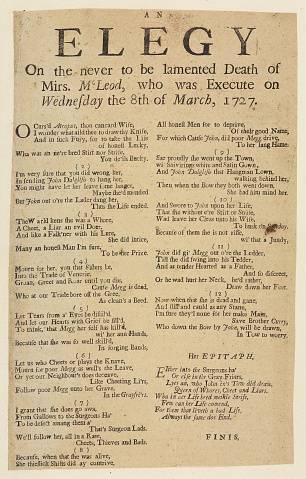 AN
ELEGY
On the never to be lamented Death of
Mirs. McLeod, who was Execute on
Wednesday the 8th of March, 1727.
O Curs'd Atropus, thou cancard Wife,
I wonder what aild thee to draw thy Knife,
And in such Fury, for to take the Life
of honest Lucky,
Wha was an ne're bred Sturt nor Strife,
You deils Bucky.
(2)
I'm very sure that you did wrong her,
In sending John Dalglish to hang her,
You might have let her leave some langer,
Maybe she'd mended
But John out o're the Lader dang her,
Thus she Life ended.
(3)
The World kens she was a Whore,
A Cheat, a Liar an evil Doer,
And like a Falk'ner with his Lure,
She did intice,
Many an honest Man I'm sure,
To be her Prize.
(4)
Mourn for her, you that Fishes be,
Into the Trade of Venerie,
Groan, Greet and Roar until you die,
Cause Megg is dead,
Who at our Trade bore the Gree,
As clean's a Beed.
(5)
Let Tears from a' Eyes be distill'd,
And let our Hearts with Grief be fill'd,
To think, that Megg her self has kill'd
wi' her ain Hands,
Because that she was so well skill'd,
In forging Bands,
(6)
Let us who Cheets or plays the Knave,
Mourn for poor Megg as well's the Leave,
Or yet our Neighbour's does deceave,
Like Cheating Liks,
Follow poor Megg unto her Grave,
In the Grayfriers.
(7)
I grant that she does go awa,
From Gallows to the Surgeons Ha'
To be defect among them a'
That's Surgeon Lads.
We'll follow her, all in a Raw,
Cheets, Thieves and Bads.
(8)
Because, when that she was alive,
She thiftlick Shifts did ay contrive,
All honest Men for to deprive,
Of their good Name,
For which Cause John, did poor Megg drive,
To her lang Hame.
(9)
Sae proudly she went up the Town,
wi' Strips into white and Satin Gown,
And John Dalglish that Hangman Lown,
walking behind her,
Then when the Bow they both went down,
She bad him mind her.
(10)
And Swore to John upon her Life,
That she without e're Sturt or Strife,
Wad leave her Cloes unto his Wife,
To busk the Sunday.
Because of them she is not rife,
wi' that a Jundy,
(11)
John did gi' Megg out o're the Ledder,
Till she did swing into his Tedder,
And as tender Hearted as a Father,
And so discreet,
Or he wad hurt her Neck, he'd rather,
Draw down her Feet.
(12)
Now when that she is dead and gane,
And stiff and cauld as any Stane,
I'm sure they'l none for her make Main,
Save Brother Curry,
Who down the Bow by John, will be drawn,
In Tow to worry.
Her EPITAPH.
Either into the Surgeons ha'
Or else in the Gray-Friars,
Lyes ane, who John in's Tow did draw,
Queen of Whores, Cheet and Liars.
Who in her Life bred meikle Strife,
Few can her Life comend,
For them that liveth a bad Life,
Always the same doe End.
FINIS.